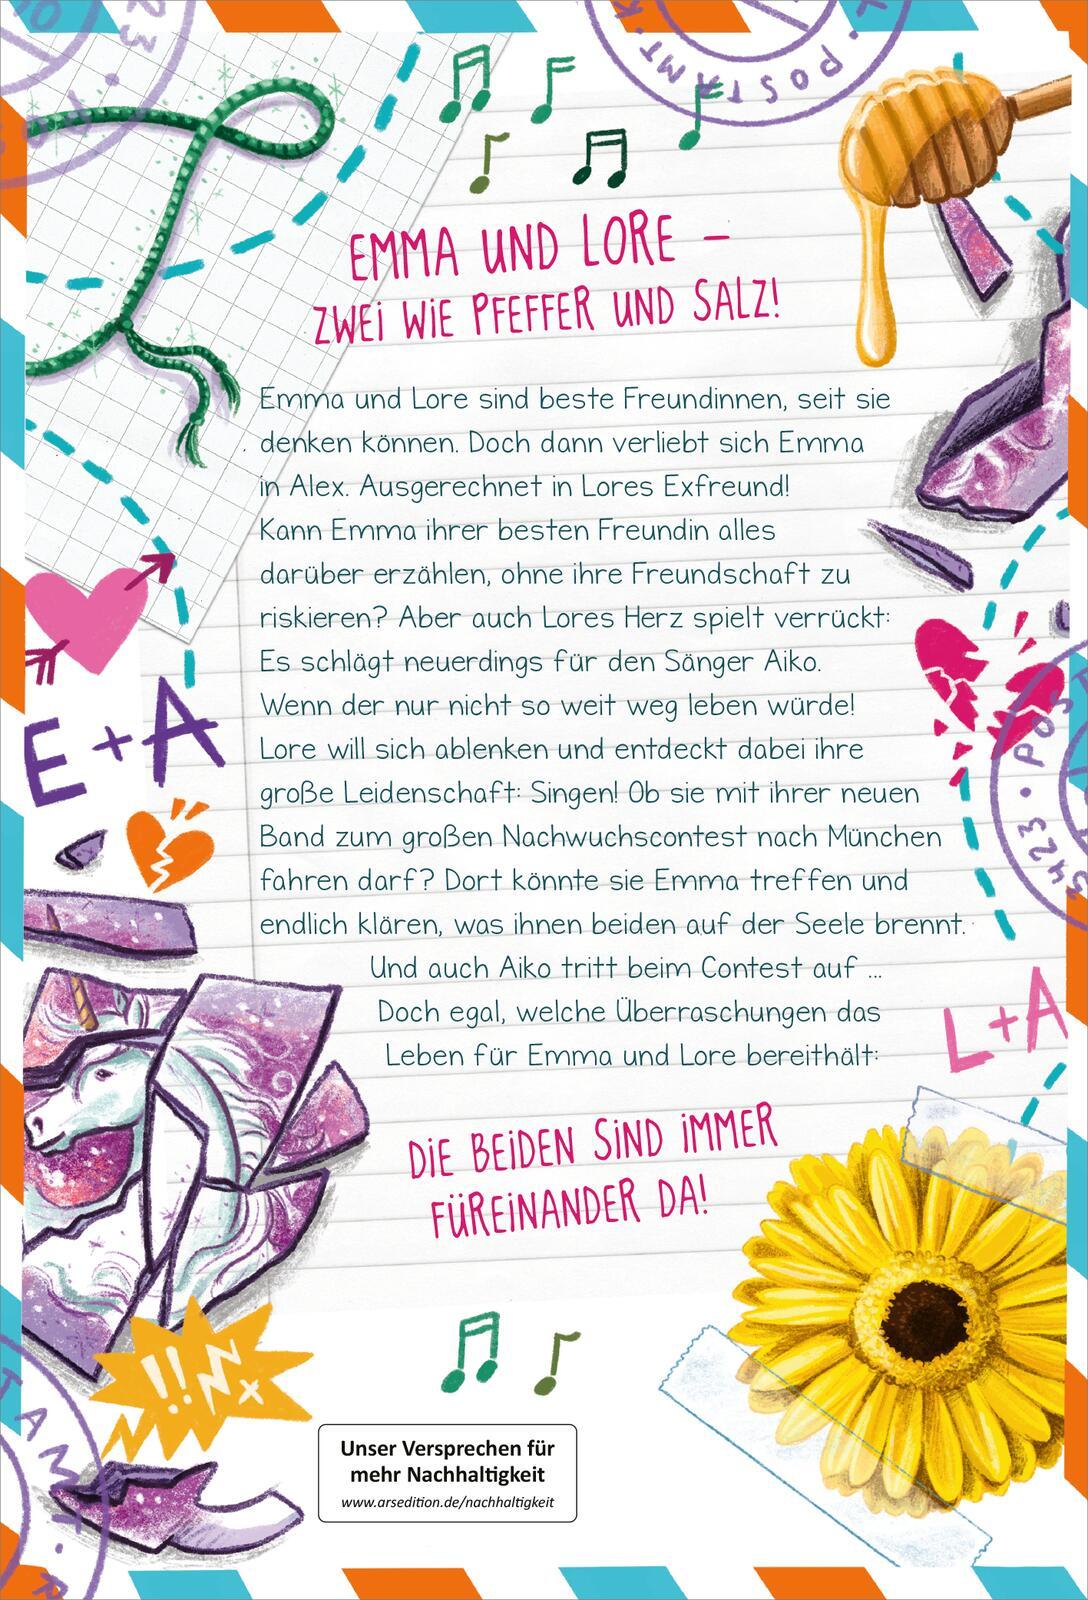 POSTAMT
EMMA UND LORE –
ZWEI WIE PFEFFER UND SALZ!
Emma und Lore sind beste Freundinnen, seit sie
denken können. Doch dann verliebt sich Emma
in Alex. Ausgerechnet in Lores Exfreund!
Kann Emma ihrer besten Freundin alles
darüber erzählen, ohne ihre Freundschaft zu
riskieren? Aber auch Lores Herz spielt verrückt:
Es schlägt neuerdings für den Sänger Aiko.
Wenn der nur nicht so weit weg leben würde!
Lore will sich ablenken und entdeckt dabei ihre
große Leidenschaft: Singen! Ob sie mit ihrer neuen
Band zum großen Nachwuchscontest nach München
fahren darf? Dort könnte sie Emma treffen und
endlich klären, was ihnen beiden auf der Seele brennt.
Und auch Aiko tritt beim Contest auf ...
Doch egal, welche Überraschungen das
Leben für Emma und Lore bereithält:
DIE BEIDEN SIND IMMER
FÜREINANDER DA!
E+A
L+A
!!
Unser Versprechen für
mehr Nachhaltigkeit
www.arsedition.de/nachhaltigkeit